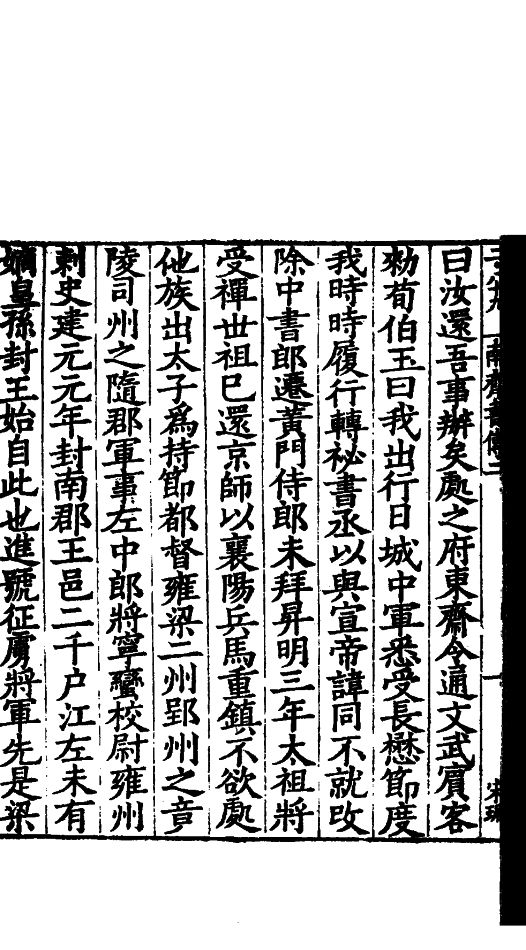 曰汝還吾事辦矣處之府東齋令通文武賓客
勑荀伯玉曰我出行日城中軍悉受長懋節度
我時時履行轉祕書丞以與宣帝諱同不就改
除中書郎遷黃門侍郎未拜昇明三年太祖將
受禪世祖已還京師以襄陽兵馬重鎮不欲處
他族出太子爲持節都督雍梁二州郢州之竟
陵司州之隨郡軍事左中郎將寧蠻校尉雍州
刺史建元元年封南郡王邑二千户江左未有
嫡皇孫封王始自此也進號征虜將軍先是梁